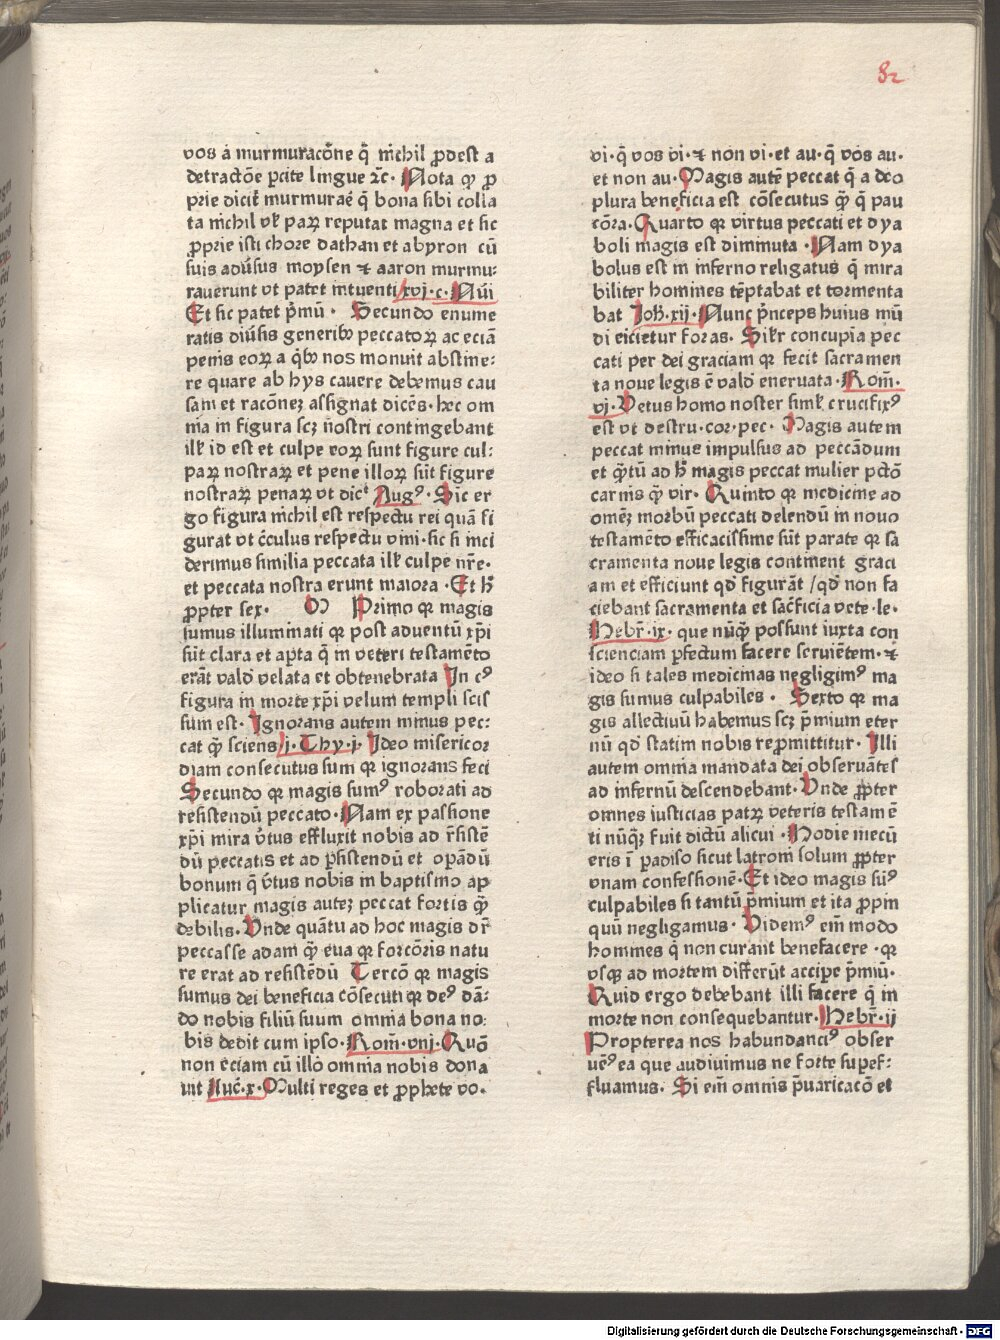 82
vos a murmuracõne q̃ nichil ꝓdest a
detractõe ꝑcite lingue ⁊c̃· Nota ꝙ ꝓ
prie dicit̃ murmurare q̃ bona sibi colla
ta nichil vl̃ parꝝ reputat magna et sic
ꝓprie isti chore dathan et abyron cũ
suis adũsus moysen ⁊ aaron murmu:
rauerunt vt patet intuenti xvj·c·Nũi
Et sic patet p̃mũ· Secundo enume
ratis diũsis generibꝫ peccatoꝝ ac eciã
penis eoꝝ a qb᷒ nos monuit abstine:
re quare ab hys cauere debemus cau
sam et racõneꝫ assignat dicẽs·hec om
nia in figura scꝫ nostri contingebant
ill̃ id est et culpe eoꝝ sunt figure cul:
paꝝ nostraꝝ et pene illoꝝ sũt figure
nostraꝝ penaꝝ vt dic̃t Augꝰ· Sic er
go figura nichil est respectu rei quã fi
gurat vt c̃culus respectu vini·sic si inci
derimus similia peccata ill̃ culpe nr̃e·
et peccata nostra erunt maiora· Et h̃
ꝓpter sex· M Primo qꝛ magis
sumus illuminati qꝛ post aduentũ xp̃i
sũt clara et aꝑta q̃ in veteri testamẽto
erãt valde velata et obtenebrata In cꝰ
figura in morte xp̃i velum templi scis
sum est· Ignorans autem minus pec:
cat q̃ꝫ sciens j·Thy·j· Ideo misericor
diam consecutus sum qꝛ ignorans feci
Secundo qꝛ magis sumꝰ roborati ad
resistendũ peccato·Nam ex passione
xp̃i mira v̑tus effluxit nobis ad r̃sistẽ
dũ peccatis et ad ꝑsistendũ et opãdũ
bonum q̃ v̑tus nobis in baptismo ap
plicatur magis auteꝫ peccat fortis q̃ꝫ
debilis· Vnde quãtu ad hoc magis dr̃
peccasse adam q̃ꝫ eua qꝛ forcõris natu
re erat ad resistẽdũ Tercõ qꝛ magis
sumus dei beneficia cõsecuti qꝛ deꝰ dã:
do nobis filiũ suum omnia bona no:
bis dedit cum ipso·Rom̃·viij·Quõ
non eciam cũ illo omnia nobis dona
uit Luc̃·x·Multi reges et ꝓphete vo·
vi·q̃ vos vi·⁊ non vi·et au·q̃ vos au·
et non au·Magis autẽ peccat q̃ a deo
plura beneficia est cõsecutus q̃ꝫ q̃ pau
cõra·Quarto qꝛ virtus peccati et dya
boli magis est diminuta· Nam dya
bolus est in inferno religatus q̃ mira
biliter homines tẽptabat et tormenta
bat Joh̃·xij·Nunc p̃nceps huius mũ
di eicietur foras. Sil̃r concupia pec
cati per dei graciam qꝛ fecit sacramen
ta noue legis ẽ valde eneruata·Rom̃·
vj·Vetus homo noster siml̃ crucifixꝰ
est vt destru·cor·pec· Magis autem
peccat minus impulsus ad peccãdum
et q̃tũ ad h̃ magis peccat mulier pctõ
carnis q̃ꝫ vir· Quinto qꝛ medicine ad
omẽꝫ morbũ peccati delendũ in nouo
testamẽto efficacissime sũt parate qꝛ sa
cramenta noue legis continent graci
am et efficiunt qd̃ figurãt /qd̃ non fa
ciebant sacramenta et sac̃ficia vete·le·
Hebr̃·ix· que nũꝙ possunt iuxta con
scienciam ꝑfectum facere seruiẽtem·⁊
ideo si tales medicinas negligimꝰ ma
gis sumus culpabiles· Sexto qꝛ ma
gis allectiuũ habemus scꝫ p̃mium eter
nũ qd̃ statim nobis reꝓmittitur· Illi
autem omnia mandata dei obseruãtes
ad infernũ descendebant· Vnde ꝓpter
omnes iusticias patrꝝ veteris testamẽ
ti nũqꝫ fuit dictũ alicui· Hodie mecũ
eris ĩ ꝑadiso sicut latroni solum ꝓpter
vnam confessionẽ·Et ideo magis sũꝰ
culpabiles si tantũ p̃mium et ita ꝓpin
quũ negligamus· Videmꝰ eni̅ modo
homines q̃ non curant benefacere·qꝛ
vsqꝫ ad mortem differũt accipe p̃miũ·
Quid ergo debebant illi facere q̃ in
morte non consequebantur·Hebr̃·ij
Propterea nos habundanciꝰ obser
uẽꝰ ea que audiuimus ne forte supef:
fluamus· Si eni̅ omnis p̃uaricacõ et
Digitalisierung gefördert durch die Deutsche Forschungsgemeinschaft · DFG